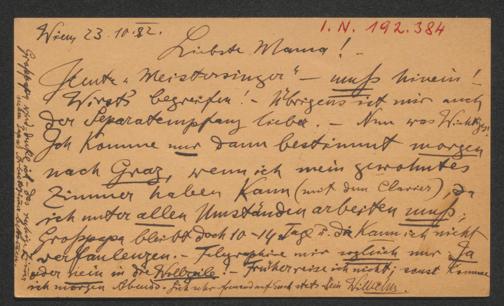 Wien, 23.10.82.
I.N. 192.384
Liebste Mama! –
Heute „Meistersinger" – muß hinein! –
Wirst's begreifen! – Übrigens ist mir auch
der Separatempfang lieber. – Nun was Wichtiges!
Ich komme nur dann bestimmt morgen
nach Graz, wenn ich mein gewohntes
Zimmer haben kann (mit dem Clavier), da
ich unter allen Umständen arbeiten muß;
Großpapa bleibt doch 10–14 Tage u. da kann ich nicht
verfaulenzen. – Telegraphire mir sogleich nur Ja
oder nein in die Wollzeile! – Früher reise ich nicht; sonst komme
ich morgen Abends. freuend auf und stets dein Wilhelm.